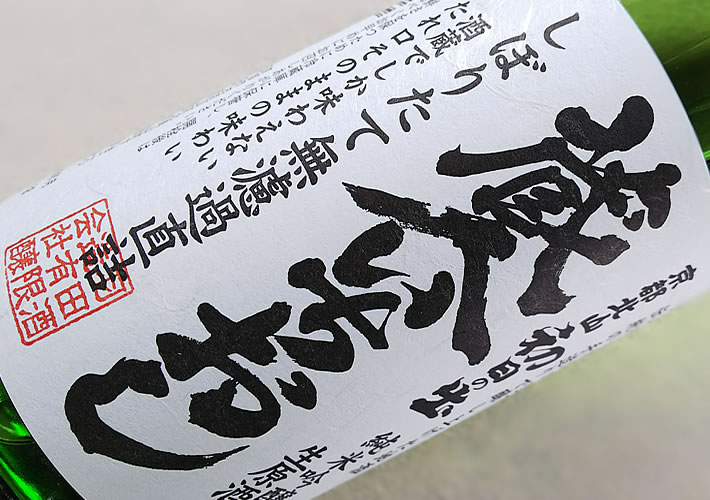 京都北山 初日の出 純米吟醸 生原酒
蔵人いちおし
しぼりたて無濾過直詰
酒蔵でしか味わえない
たれ口そのままの味わい
羽田酒
造有限
会社醸